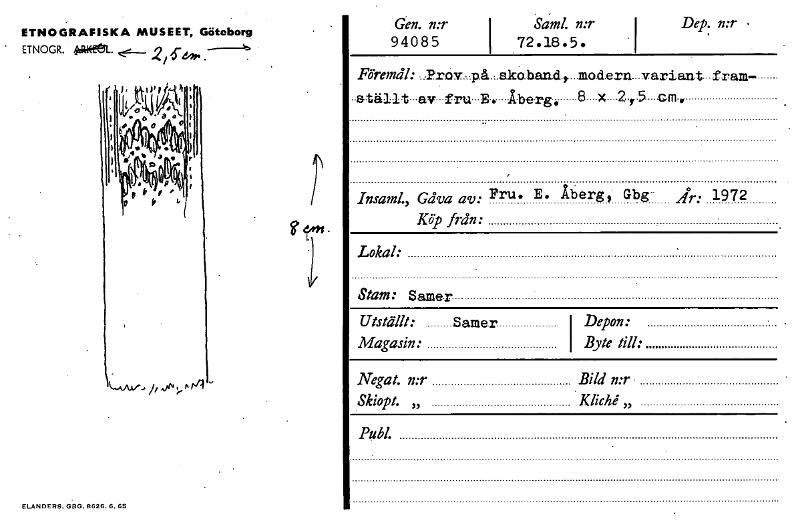 ETNOGRAFISKA MUSEET, Göteborg
ETNOGR. ARKEOL.
2,5 cm.
8 cm.
ELANDERS. GBG. 8626. 6. 65
Gen. n:r Saml. n:r Dep. n:r
94085 72.18.5.
Föremål: Prov på skoband, modern variant fram-
ställt av fru E. Åberg. 8 x 2,5 cm.
Insaml., Gåva av: Fru. E. Åberg, Gbg År: 1972
Köp från:
Lokal:
Stam: Samer
Utställt: Samer Depon:
Magasin: Byte till:
Negat. n:r Bild n:r
Skiopt. „ Kliché „
Publ.